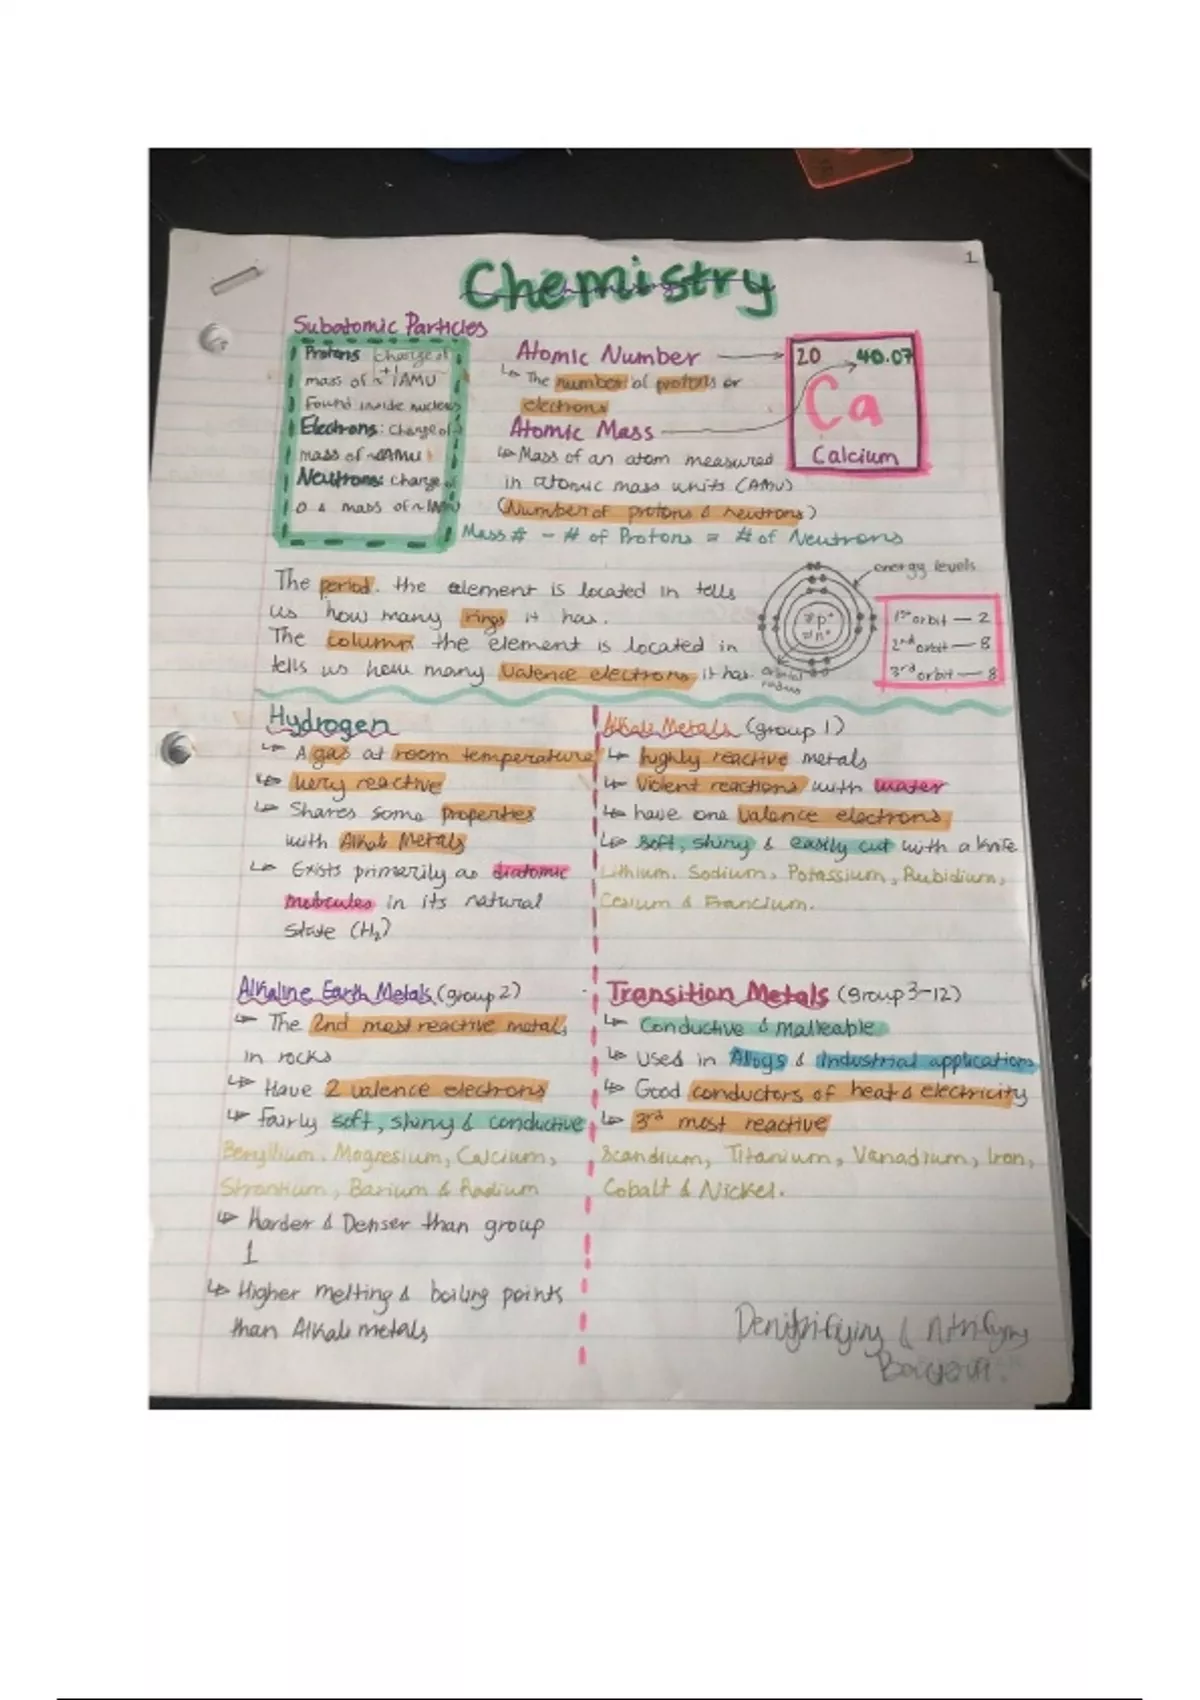 1
Chemistry
Subatomic Particles
Protons charge of
+1
mass of ~1AMU
Found inside nucleus
Electrons: charge of
mass of ~0AMU
Neutrons: charge of
0 & mass of ~1AMU
Atomic Number
↳ The number of protons or
electrons
Atomic Mass
↳ Mass of an atom measured
in atomic mass units (AMU)
(Number of protons & neutrons)
20 40.07
Ca
Calcium
Mass # - # of Protons = # of Neutrons
The period the element is located in tells
us how many rings it has.
The column the element is located in
tells us how many valence electrons it has.
energy levels
p+
n°
orbital
radius
1st orbit — 2
2nd orbit — 8
3rd orbit — 8
Hydrogen
↳ A gas at room temperature
↳ very reactive
↳ Shares some properties
with Alkali Metals
↳ Exists primarily as diatomic
molecules in its natural
state (H₂)
Alkali Metals (group 1)
↳ highly reactive metals
↳ Violent reactions with water
↳ have one valence electrons
↳ soft, shiny & easily cut with a knife
Lithium, Sodium, Potassium, Rubidium,
Cesium & Francium.
Alkaline Earth Metals (group 2)
↳ The 2nd most reactive metals
in rocks
↳ Have 2 valence electrons
↳ fairly soft, shiny & conductive
Beryllium, Magresium, Calcium,
Strontium, Barium & Radium
↳ Harder & Denser than group
1
↳ Higher melting & boiling points
than Alkali metals
Transition Metals (group 3-12)
↳ Conductive & Malleable
↳ Used in Alloys & Industrial applications
↳ Good conductors of heat & electricity
↳ 3rd most reactive
Scandium, Titanium, Vanadium, Iron,
Cobalt & Nickel.
Denitrifying & nitrifying